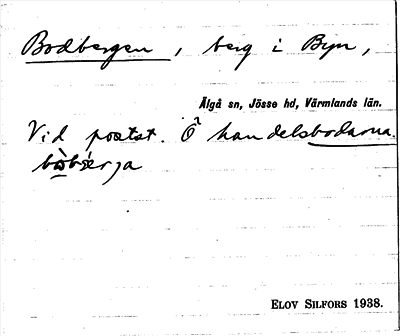 Bodbergen, berg i Byn,
Älgå sn, Jösse hd, Värmlands län.
Vid postst. Ö handelsbodarna.
ELOV SILFORS 1938.